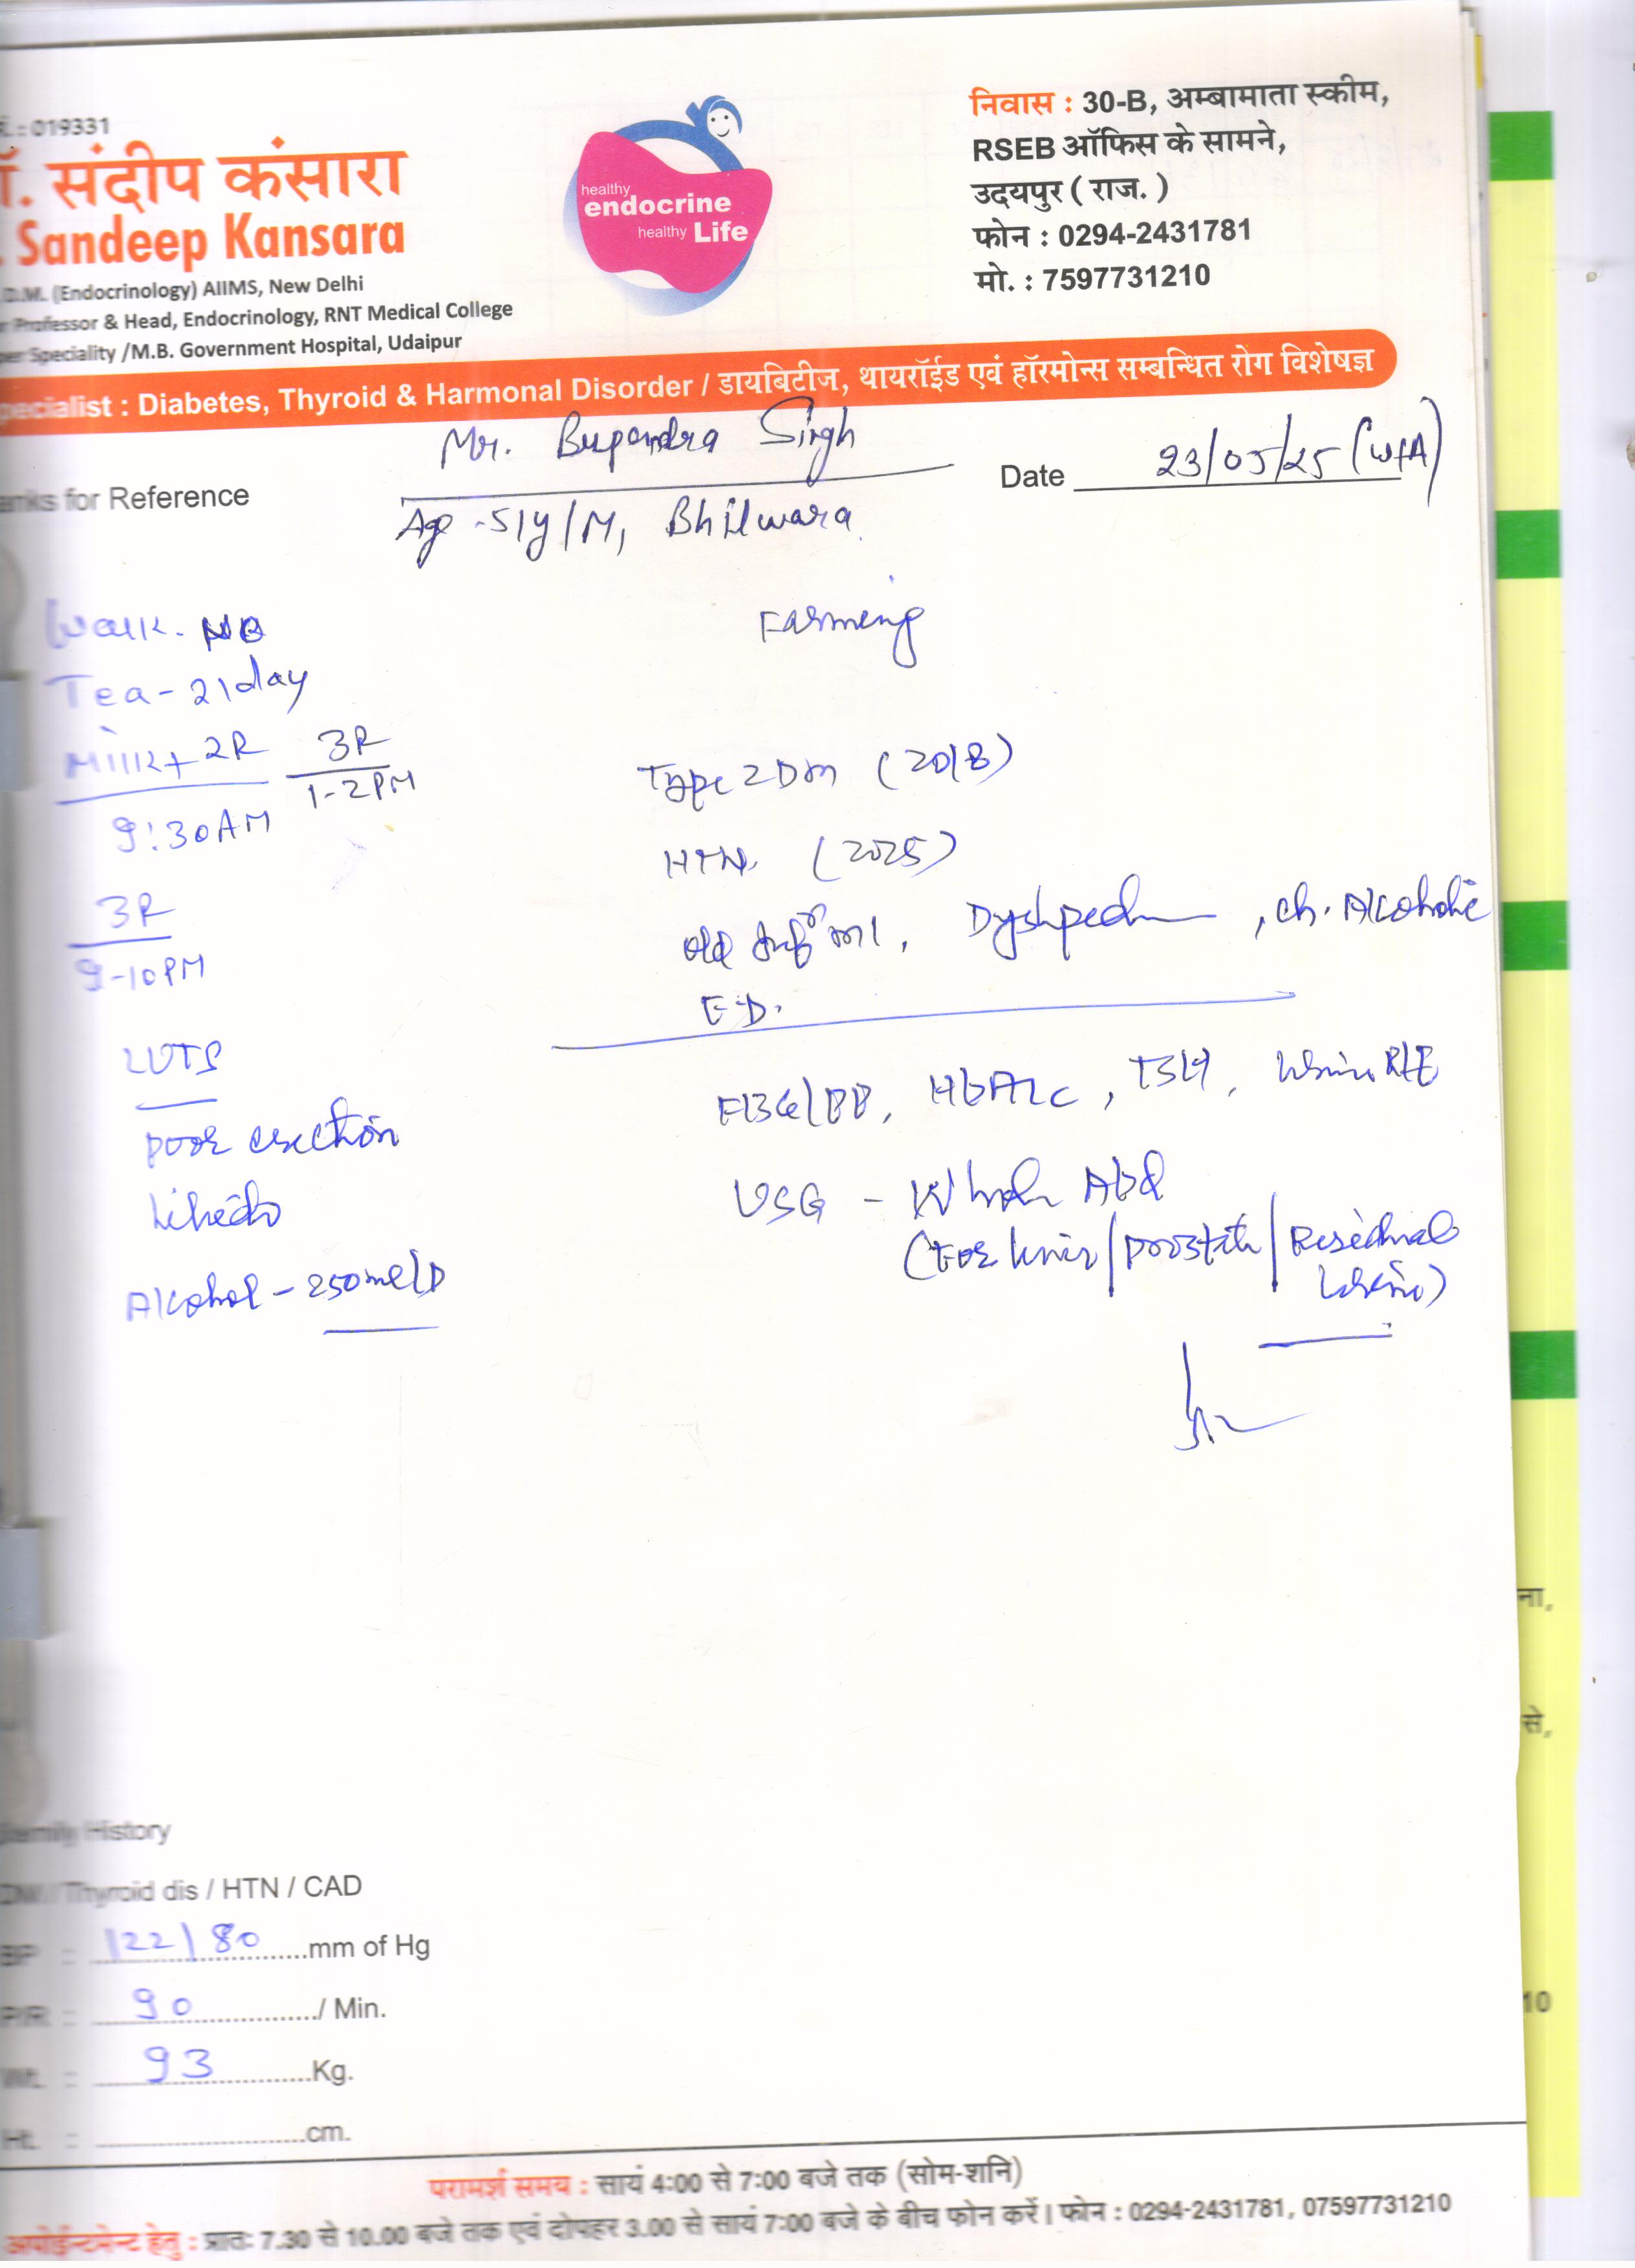 .: 019331
डॉ. संदीप कंसारा
Sandeep Kansara
D.M. (Endocrinology) AIIMS, New Delhi
Professor & Head, Endocrinology, RNT Medical College
Speciality /M.B. Government Hospital, Udaipur
healthy
endocrine
healthy Life
निवास : 30-B, अम्बामाता स्कीम,
RSEB ऑफिस के सामने,
उदयपुर ( राज. )
फोन : 0294-2431781
मो. : 7597731210
Specialist : Diabetes, Thyroid & Harmonal Disorder / डायबिटीज, थायरॉईड एवं हॉरमोन्स सम्बन्धित रोग विशेषज्ञ
Mr. Bupendra Singh
Date 23/05/25
for Reference
Age - 51y/M, Bhilwara
Farming
Walk - NO
Tea - 2/day
Milk + 2R
9:30 AM
3R
1-2 PM
3R
9-10 PM
LUTS
poor erection
Libido
Alcohol - 250 ml/D
Type 2 DM (2018)
HTN (2025)
old MI, , ch. Alcoholic
E.D.
HbA1c, TSH, Urine R/E
USG - Whole Abd
(For liver/prostate/Residual
Urine)
Family History
DM / Thyroid dis / HTN / CAD
BP : 122/80 mm of Hg
P/R : 90 / Min.
Wt. : 93 Kg.
Ht. : cm.
परामर्श समय : सायं 4:00 से 7:00 बजे तक (सोम-शनि)
अपोईन्टमेन्ट हेतु : प्रातः 7.30 से 10.00 बजे तक एवं दोपहर 3.00 से सायं 7:00 बजे के बीच फोन करें। फोन : 0294-2431781, 07597731210
ना,
से,
10